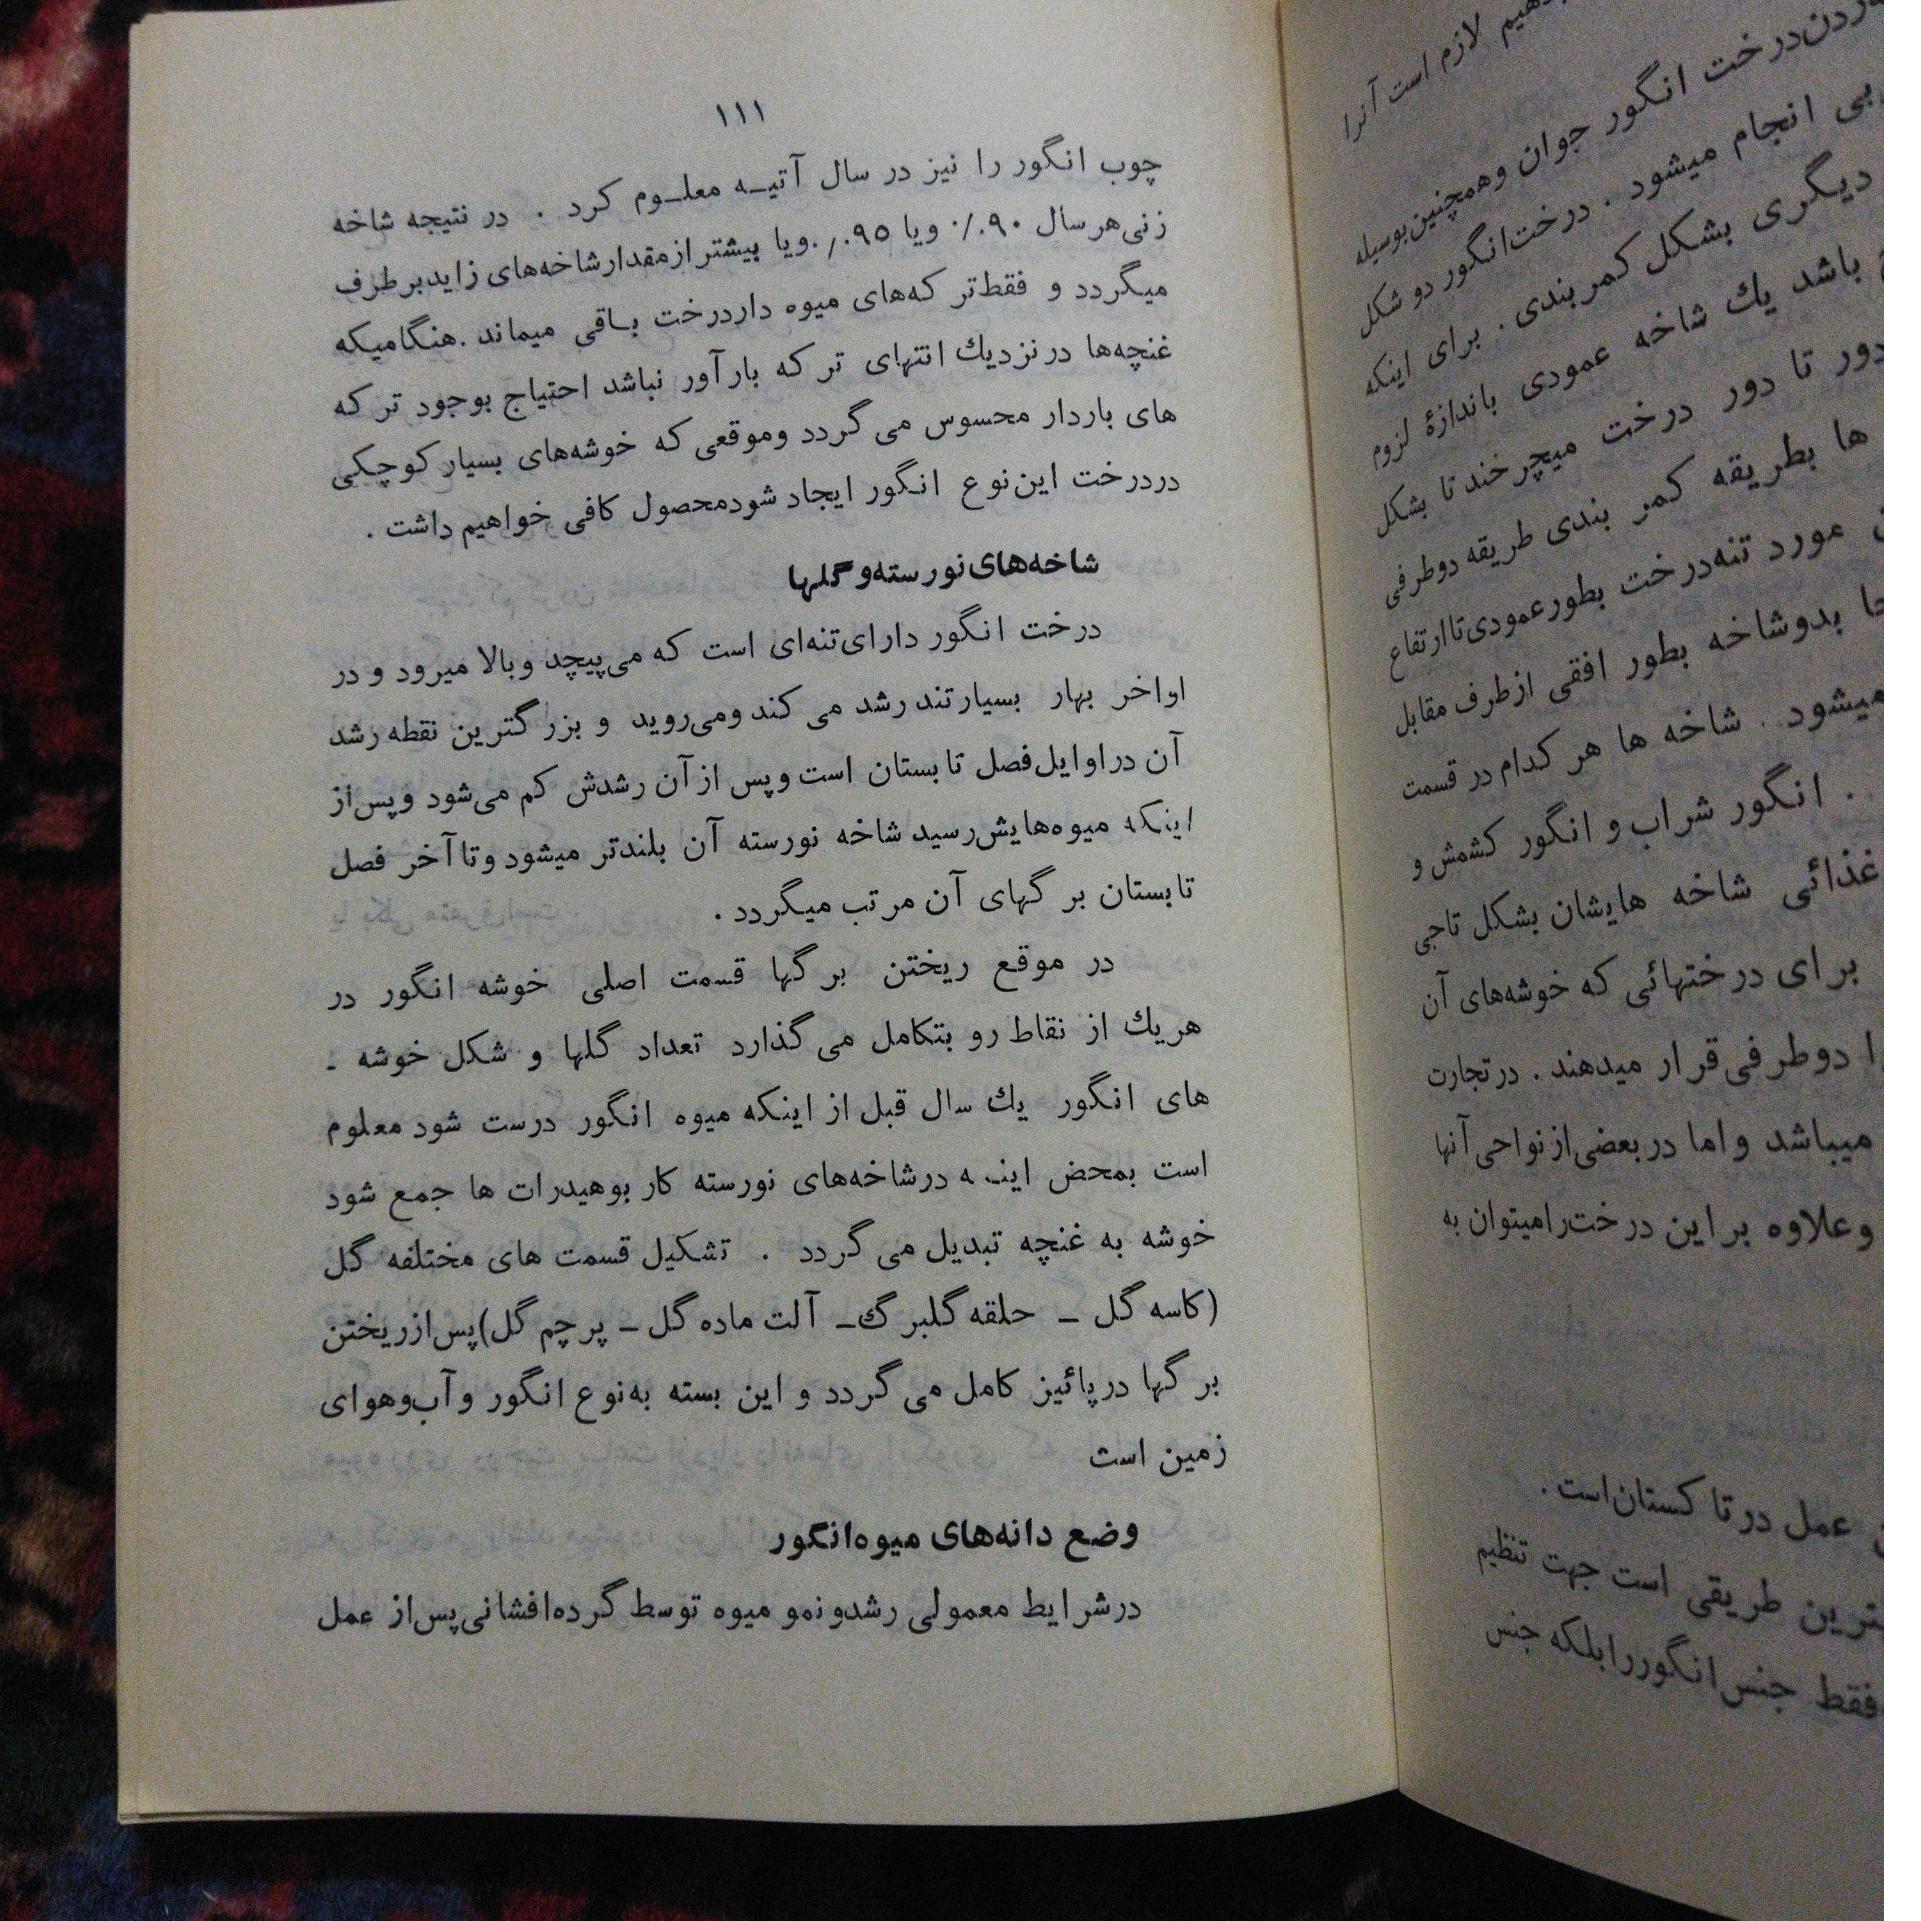 ۱۱۱
چوب انگور را نیز در سال آتیـه معلـوم کرد . در نتیجه شاخه
زنی‌هرسال ۹۰٪ ویا ۹۵٪ .ویا بیشتر ازمقدارشاخه‌های زایدبرطرف
میگردد و فقط‌تر که‌های میوه داردرخت بـاقی میماند .هنگامیکه
غنچه‌ها در نزدیك انتهای تر که بارآور نباشد احتیاج بوجود تر که
های باردار محسوس می گردد وموقعی که خوشه‌های بسیار کوچکی
دردرخت این‌نوع انگور ایجاد شودمحصول کافی خواهیم داشت .
شاخه‌های نورسته‌و گلها
درخت انگور دارای‌تنه‌ای است که می‌پیچد وبالا میرود و در
اواخر بهار بسیارتند رشد می کند ومی‌روید و بزر گترین نقطه رشد
آن دراوایل‌فصل تابستان است وپس از آن رشدش کم می‌شود وپس‌از
اینکه میوه‌هایش‌رسید شاخه نورسته آن بلندتر میشود وتا آخر فصل
تابستان بر گهای آن مرتب میگردد .
در موقع ریختن بر گها قسمت اصلی خوشه انگور در
هریك از نقاط رو بتکامل می گذارد تعداد گلها و شکل خوشه -
های انگور یك سال قبل از اینکه میوه انگور درست شود معلوم
است بمحض اینـ ه درشاخه‌های نورسته کار بوهیدرات ها جمع شود
خوشه به غنچه تبدیل می گردد . تشکیل قسمت های مختلفه گل
(کاسه گل – حلقه گلبر گ– آلت ماده گل – پرچم گل)پس‌ازریختن
بر گها درپائیز کامل می گردد و این بسته به‌نوع انگور و آب‌وهوای
زمین است
وضع دانه‌های میوه‌انگور
درشرایط معمولی رشدو نمو میوه توسط گرده‌افشانی‌پس‌از عمل
لازم است آنرا
درخت انگور جوان وهمچنین‌بوسیله
انجام میشود . درخت‌انگور دو شکل
دیگری بشکل کمربندی . برای اینکه
باشد یك شاخه عمودی باندازهٔ لزوم
دور تا دور درخت میچرخند تا بشکل
ها بطریقه کمر بندی طریقه دوطرفی
مورد تنه‌درخت بطورعمودی‌تاارتفاع
بدوشاخه بطور افقی ازطرف مقابل
میشود . شاخه ها هر کدام در قسمت
. انگور شراب و انگور کشمش و
غذائی شاخه هایشان بشکل تاجی
برای درختهائی که خوشه‌های آن
دوطرفی‌قرار میدهند . درتجارت
میباشد واما دربعضی‌ازنواحی آنها
وعلاوه براین درخت‌رامیتوان به
عمل درتا کستان‌است .
طریقی است جهت تنظیم
فقط جنس‌انگوررابلکه جنس